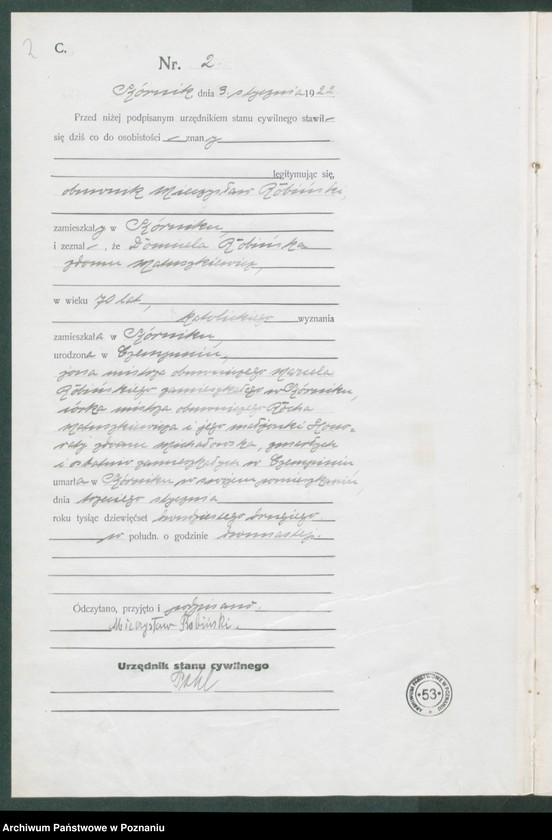 2
C.
Nr. 2
Kórnik dnia 3. stycznia 1922
Przed niżej podpisanym urzędnikiem stanu cywilnego stawił
się dziś co do osobistości znany
legitymując się,
obuwnik Mieczysław Robiński,
zamieszkały w Kórniku,
i zeznał, że Robińska
zdomu Matuszkiewicz,
w wieku 70 lat,
katolickiego wyznania
zamieszkała w Kórniku,
urodzona w Czempiniu,
żona mistrza obuwniczego Marcela
Robińskiego zamieszkałego w Kórniku,
córka mistrza obuwniczego Rocha
Matuszkiewicza i jego małżonki Hono-
raty zdomu Michałowska, zmarłych
i ostatnio zamieszkałych w Czempiniu
umarła w Kórniku w swojem pomieszkaniu,
dnia trzeciego stycznia
roku tysiąc dziewięćset dwudziestego drugiego
w połudn. o godzinie dwunastej.
Odczytano, przyjęto i podpisano.
Mieczysław Robiński.
Urzędnik stanu cywilnego
ARCHIWUM PAŃSTWOWE W POZNANIU
53
Archiwum Państwowe w Poznaniu